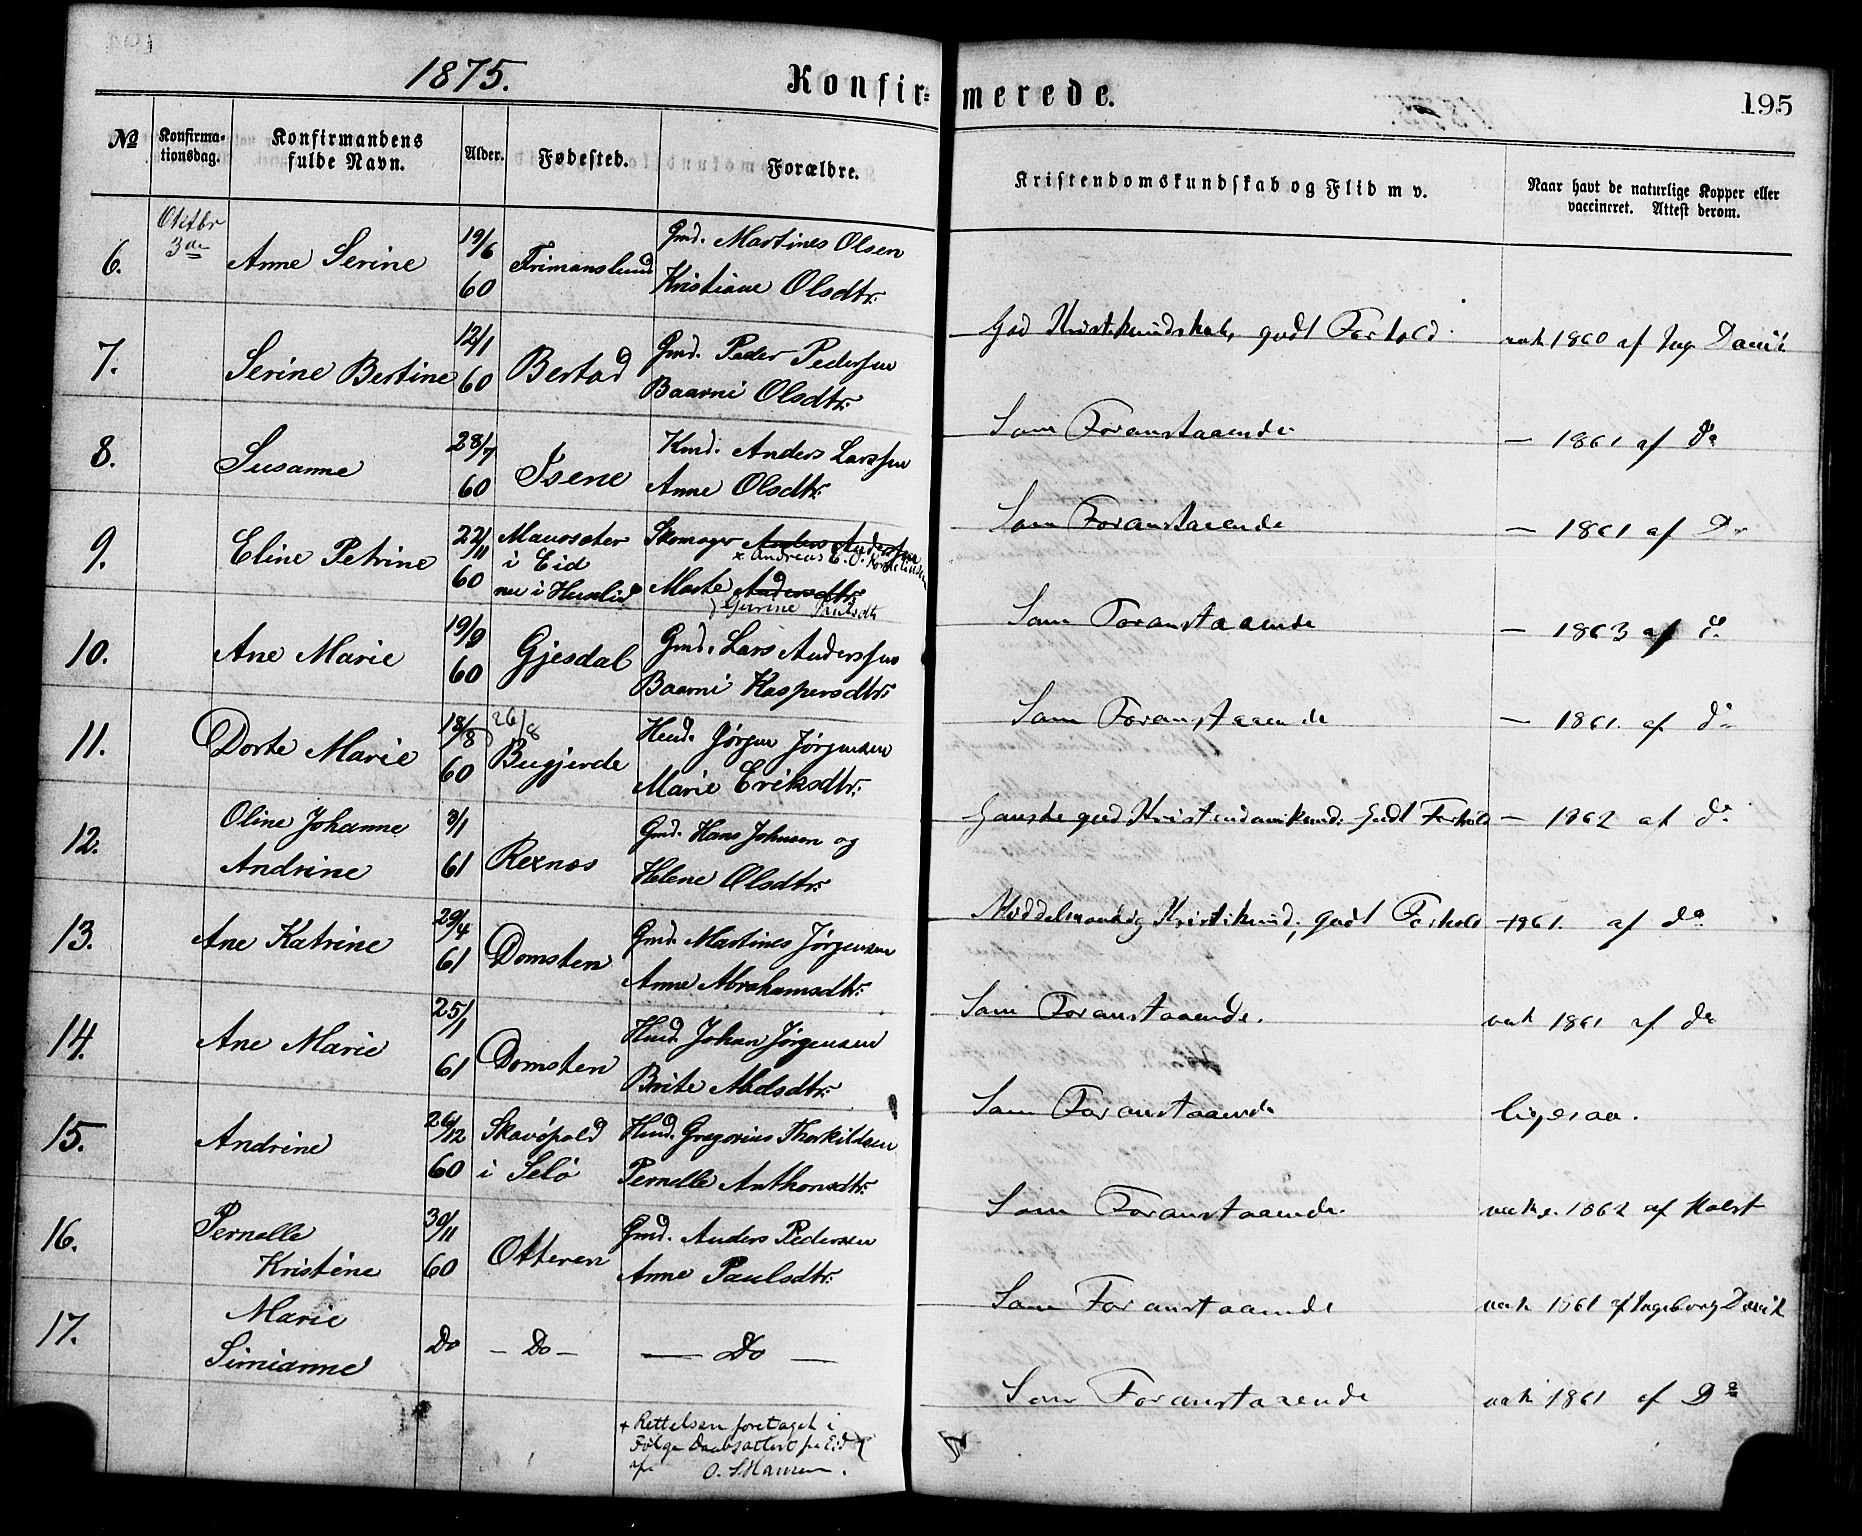 1875.
Konfir=
merede.
195
No
Konfirma-
tionsdag.
Konfirmandens
fulde Navn.
Alder.
Fødested.
Forældre.
Kristendomskundskab og Flid m v.
Naar havt de naturlige Kopper eller
vaccineret. Attest derom.
6. Oktbr 3de Anne Serine 19/6 60 Frimanslund Gmd. Martines Olsen
Kristiane Olsdtr.
God Kristikundskab, godt Forhold vak 1860 af Ing
7. Serine Bertine 12/1 60 Berstad Gmd. Peder Pedersen
Baarni Olsdtr.
Som Foranstaaende — 1861 af do
8. Susanne 28/7 60 Isene Kmd. Anders Larssen
Anne Olsdtr.
Som Foranstaaende — 1861 af Do
9. Eline Petrine 22/11 60 Maurseter
i Eid
nu i Huslid
Skomager Anders Anderssen
x Andreas E. O.
Marte Andersdtr.
Gurine Paulsdtr
Som Foranstaaende — 1863 af do
10. Ane Marie 19/9 60 Gjesdal Gmd. Lars Anderssen
Baarni Kaspersdtr.
Som Foranstaaende — 1861. af do
11. Dorte Marie 18/8 60 26/8 Bugjerde Husd. Jørgen Jørgensen
Marie Eriksdtr.
Ganske god Kristendomskund. Godt Forhold — 1862 af do
12. Oline Johanne
Andrine 3/1 61 Rexnes Gmd. Hans Johnsen og
Helene Olsdtr.
Middelmaadig Kristikund., godt Forhold — 1861. af do
13. Ane Katrine 29/4 61 Domsten Gmd. Martines Jørgensen
Anne Abrahamsdtr.
Som Foranstaaende. vak 1861 af do
14. Ane Marie 25/1 61 Domsten Husd. Johan Jørgensen
Brite Madsdtr.
Som Foranstaaende ligesaa.
15. Andrine 26/12 60 Skavøpold
i Selø
Husd. Gregorius Thorkildsen
Pernelle Anthonsdtr.
Som Foranstaaende. 1862 af Holst
16. Pernelle
Kristine 30/11 60 Otteren Gmd. Anders Pedersen
Anne Paulsdtr.
Som Foranstaaende vak 1861 af Ingeborg
17. Marie
Simianne Do — Do — — Do —
Som Foranstaaende vak 1861 af Do
+ Rettelsen foretaget i
Følge Daabsattest fra Eid
af O. S. Hansen.